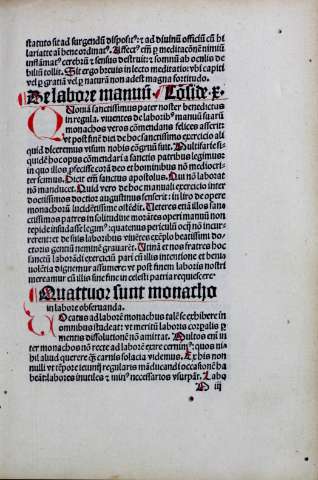 statuto sit ad surgendū disposit⁹ & ad diuinū officiū cū hi
lariate animi ordinat⁹. Affect⁹ em̄ p meditacōnē nimiū
inflamat⁹ cerebrū & sensus destruit: & somnū ab oculis de
bilitū tollit. Sit ergo breuis in lecto meditatio: vbi capiti
vel p gratiā vel p naturā non adest magna fortitudo.
De labore manuū
Quoniā sanctissimus pater noster benedictus
in regula. viuentes de laborib⁹ manuū suarū
monachos veros cōmendans felices asserit:
vt post finē dict de hoc sanctissimo exercicio ali
quid diceremus visum nobis cōgruū fuit.
quidē hoc opus cōmendari a sanctis patribus legimus:
in quo illos pfecisse cōstat deo et hominibus nō mediocri
ter scimus. Dicit em̄ sanctus apostolus. Qui nō laborat
nō manducet. Quid vero de hoc manuali exercicio inter
doctissimos doctior augustinus senserit: in libro de opere
monachorū lucidissime ostēdit. Veteres etiā illos san
ctissimos patres in solitudine morātes operi manuū non
tepide insudasse legim⁹: quatenus periculū ocij nō incur
rerent: et de suis laboribus viuētes exēplo beatissimi do
ctoris gentiū neminē grauarēt. Vtinā et nos fratres hoc
sanctū laborādi exerciciū pari cū illis intentione et beni
uolētia dignemur assumere: vt post finem laboris nostri
mereamur cū illis sine fine in celesti patria requiescere
Quattuor sunt monacho
in labore obseruanda.
Uocatus ad laborē monachus talē se exhibere in
omnibus studeat: vt meritū laboris corpalis p
mentis dissolutionē nō amittat. Multos em̄ in
ter monachos nō recte ad laborē exire cernim⁹: quos ni
hil aliud querere q̄ carnis solacia videmus. Ex his non
nulli vt tēpore ieiunij regularis māducandi occasionē ha
beāt: labores inutiles & min⁹ necessarios vsurpāt. Labo